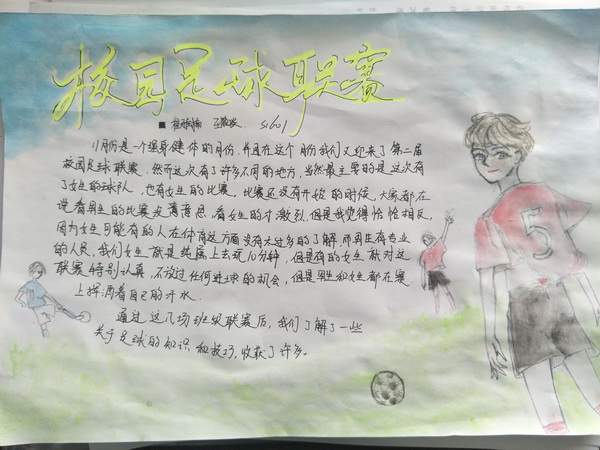 校园足球联赛
S1601
11月份是一个强身健体的月份,并且在这个月份我们又迎来了第二届
校园足球联赛,然而这次有了许多不同的地方,当然最主要的是这次有
了女生的球队,也有女生的比赛。比赛还没有开始的时候,大家都在
说看男生的比赛没有意思,看女生的才激烈,但是我觉得恰恰相反,
因为女生可能有的人在体育这方面没有太过多的了解,而男生有专业
的人员,我们女生就是纯属上去玩10分钟,但是有的女生就对这
联赛特别认真,不放过任何进球的机会,但是男生和女生都在赛
上挥洒着自己的汗水。
通过这几场班级联赛后,我们了解了一些
关于足球的知识和技巧,收获了许多。
5